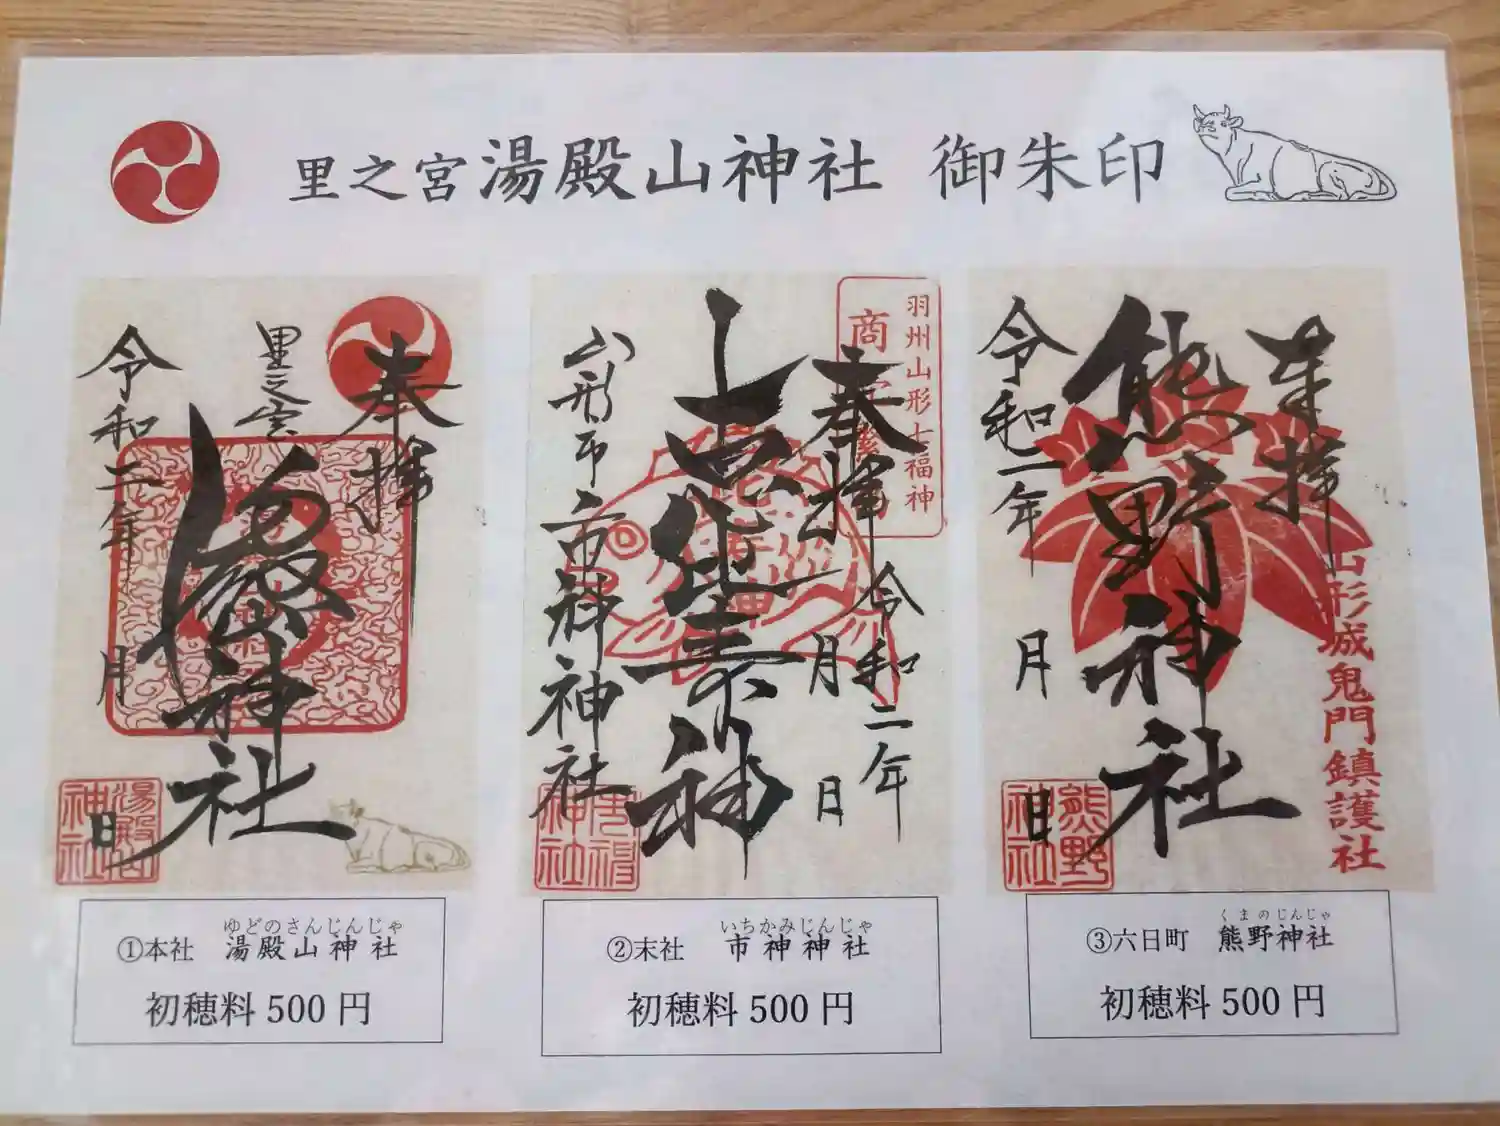 里之宮湯殿山神社 御朱印
奉拝
里之宮
湯殿山神社
令和二年 月 日
湯殿山
神社
羽州山形七福神
奉拝
令和二年
月 日
事代主神
山形市市神神社
神社
奉拝
熊野神社
令和二年 月 日
山形城鬼門鎮護社
熊野
神社
ゆどのさんじんじゃ
①本社 湯殿山神社
初穂料500円
いちかみじんじゃ
②末社 市神神社
初穂料500円
くまのじんじゃ
③六日町 熊野神社
初穂料500円